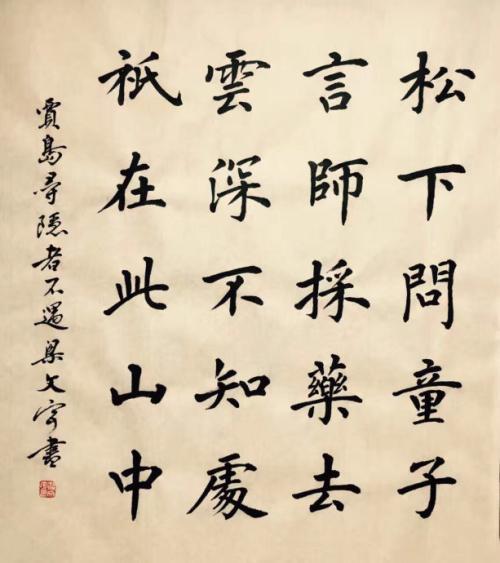 松下問童子
言師採藥去
祇在此山中
雲深不知處
賈島尋隱者不遇梁文寫書